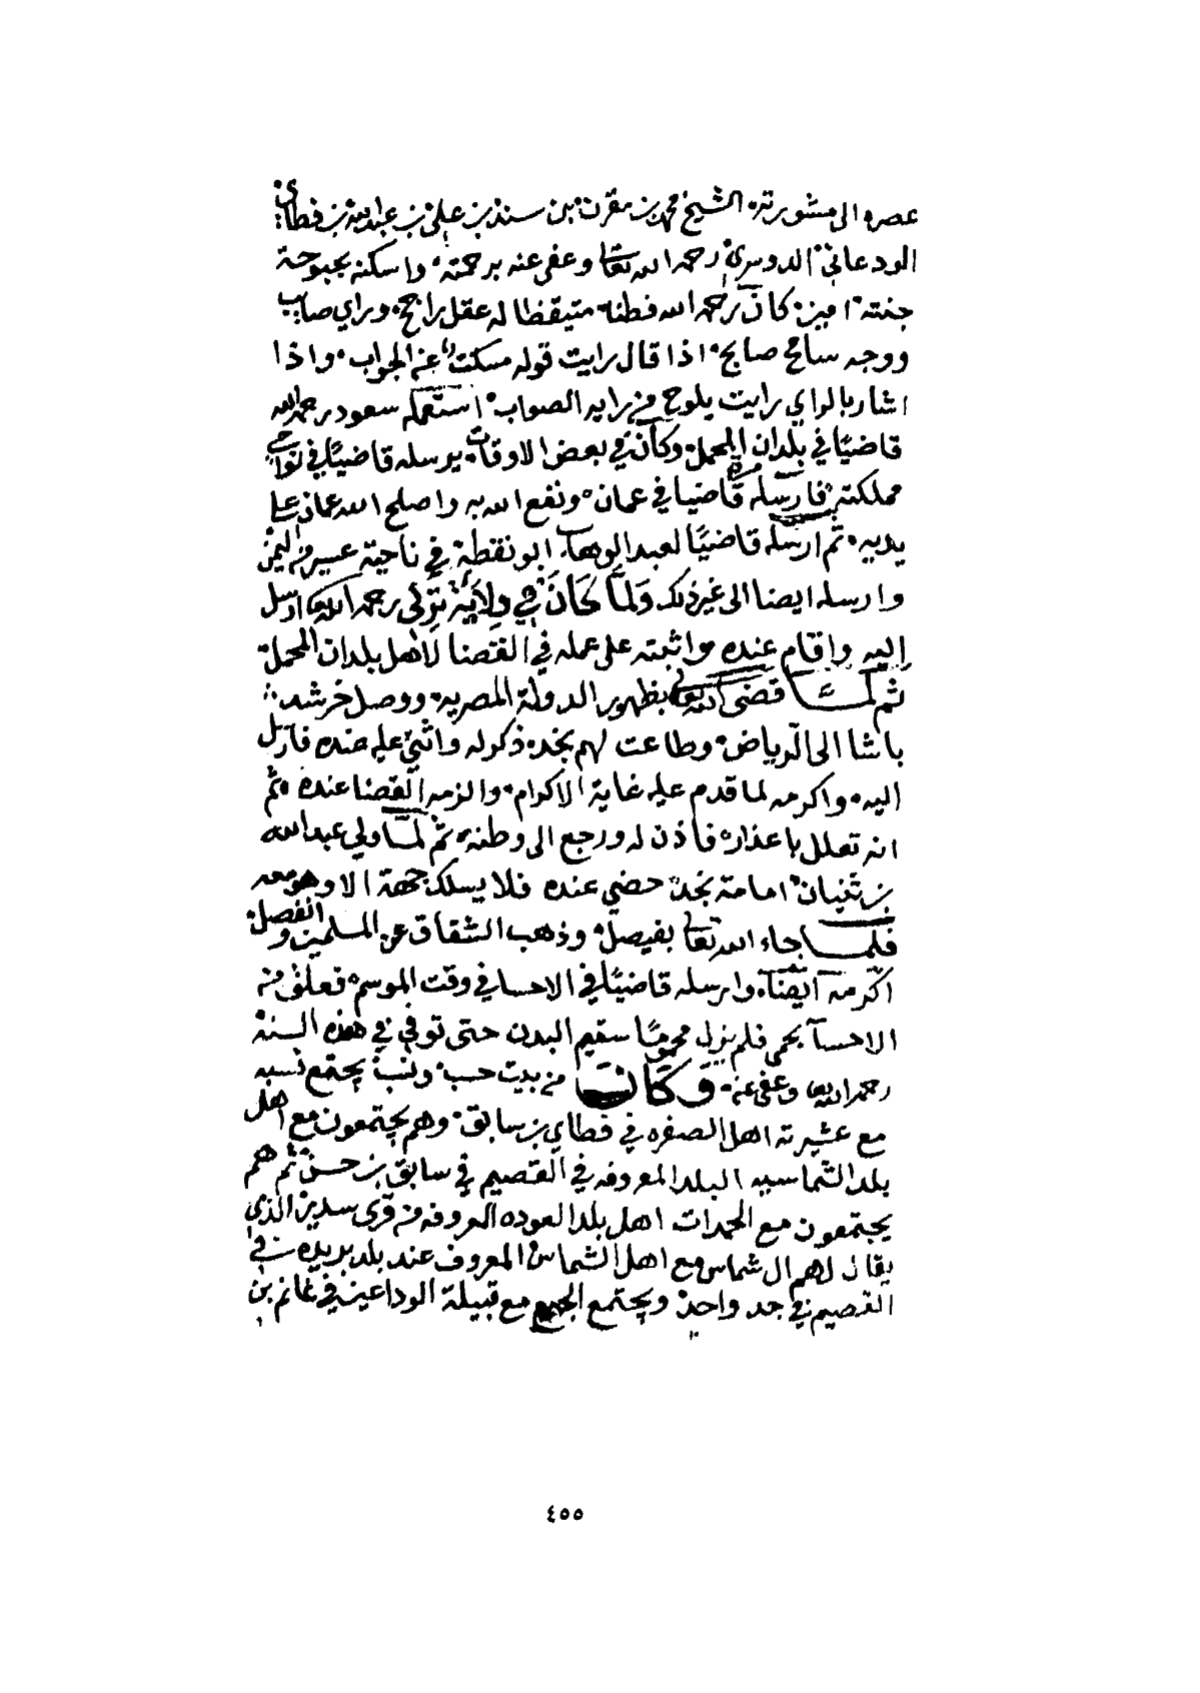 عصره الى مشورته الشيخ محمد بن مقرن بن سند بن علي بن عبدالله بن فطاي
الودعاني الدوسري رحمه الله تعالى وعفى عنه برحمته واسكنه بحبوحة
جنته امين كان رحمه الله فطنا متيقظا له عقل راجح وراي صايب
ووجه سامح صابح اذا قال رايت قوله مسكتا عن الجواب واذا
اشار بالراي رايت يلوح من رايه الصواب استعمله سعود رحمه الله
قاضيًا في بلدان المحمل وكان في بعض الاوقات يرسله قاضيًا في نواحي
مملكته فارسله مرة قاضيا في عمان ونفع الله به واصلح الله عمان على
يديه ثم ارسله قاضيًا لعبد الوهاب ابو نقطة في ناحية عسير من اليمن
وارسله ايضا الى غير ذلك ولما كان في ولاية تركي رحمه الله ارسل
اليه واقام عنده واثبته على عمله في القضا لاهل بلدان المحمل
ثم لما قضى الله تعالى بظهور الدولة المصريه ووصل خرشد
باشا الى الرياض وطاعت لهم نجد ذكر له واثني عليه عنده فارسل
اليه واكرمه لما قدم عليه غاية الاكرام والزمه القضا عنده ثم
انه تعلل باعذار فاذن له ورجع الى وطنه ثم لما ولي عبدالله
بن ثنيان امامة نجد حضي عنده فلا يسلك جهة الا وهو معه
فلما جاء الله تعالى بفيصل وذهب الشقاق عن المسلمين وانفصل
اكرمه ايضا وارسله قاضيًا في الاحسا في وقت الموسم فعلق من
الاحسآ بحمى فلم يزل محمومًا سقيم البدن حتى توفي في هذه السنة
رحمه الله وعفى عنه وكان من بيت حسب ونسب يجتمع نسبه
مع عشيرته اهل الصفره في فطاي بن سابق وهم يجتمعون مع اهل
بلد الشماسيه البلد المعروفه في القصيم في سابق بن حسن ثم هم
يجتمعون مع الحمدات اهل بلد العوده المعروفه من قرى سدير الذي
يقال لهم ال شماس مع اهل الشماس المعروف عند بلد بريده في
القصيم في جد واحد ويجتمع الجميع مع قبيلة الوداعين في غانم بن
٤٥٥